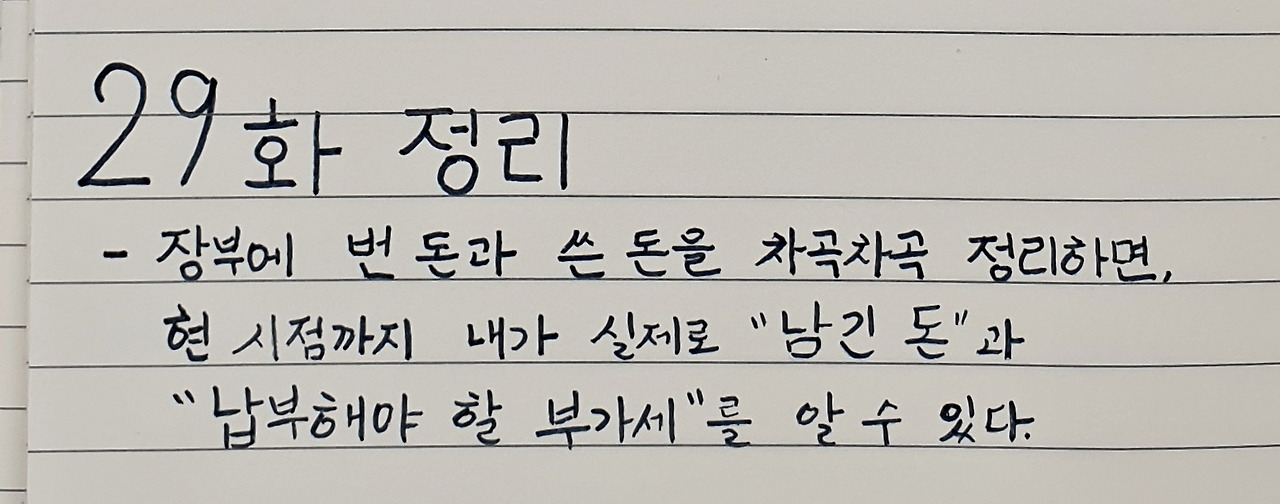 29화 정리
- 장부에 번 돈과 쓴 돈을 차곡차곡 정리하면,
현 시점까지 내가 실제로 "남긴 돈"과
"납부해야 할 부가세"를 알 수 있다.